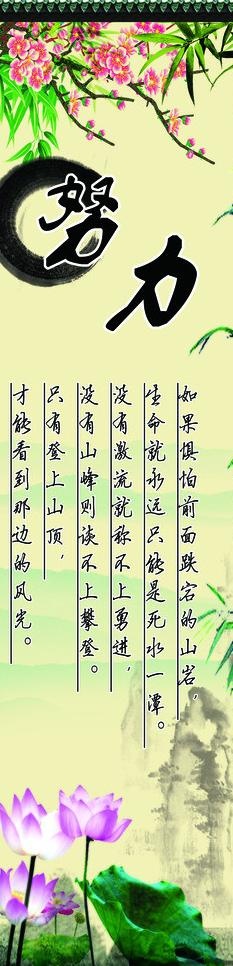 努力
如果惧怕前面跌宕的山岩，
生命就永远只能是死水一潭。
没有激流就称不上勇进，
没有山峰则谈不上攀登。
只有登上山顶，
才能看到那边的风光。